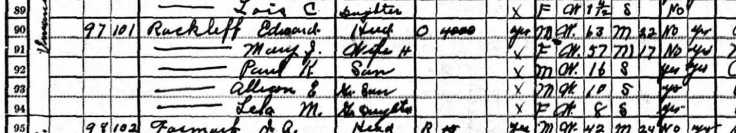 89 Lois C Daughter X F W 1 9/12 S No
90 97 101 Rockleff Edward Head O 4000 yes M W 63 M 22 No yes
91 — Mary J. Wife H X F W. 57 M 17 No yes
92 — Paul K Son X M W. 16 S yes yes
93 — Allison E Gr Son X M W. 10 S yes
94 — Lela M. Gr Daughter X F W 8 S yes
95 98 102 Head R yes M W 42 M No yes